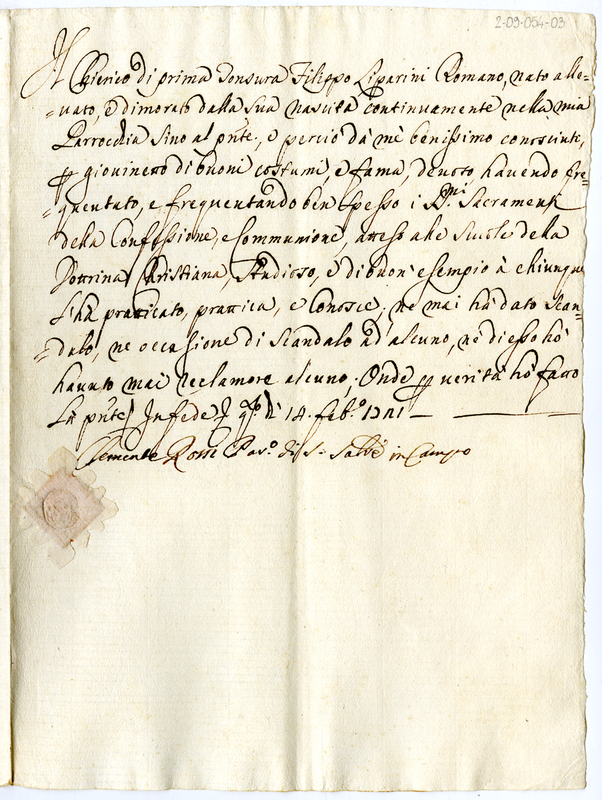 2-09-054-03
Il Chierico di prima Tonsura Filippo Liparini Romano, nato alle=
=uato, e dimorato dalla Sua nascita continuamente nella mia
Parrocchia Sino al pnte, e perciò da mè benissimo conosciuto,
giouinetto di buoni costumi, e fama, deuoto hauendo fre=
=quentato, e frequentando ben Spesso i SSmi Sacramenti
della Confessione, e Communione, atteso alle Scuole della
Dottrina Christiana, Studioso, e di buon' esempio à chiunque
l'hà pratticato, prattica, e conosce, ne mai hà dato Scan=
=dalo, ne occasione di Scandalo ad alcuno, nè di esso hò
hauuto mai reclamore alcuno; Onde p uerità hò fatto
la pnte In fede q.to dì 14. feb.o 1721
Clemente Rossi di S. Salu.e in Campo